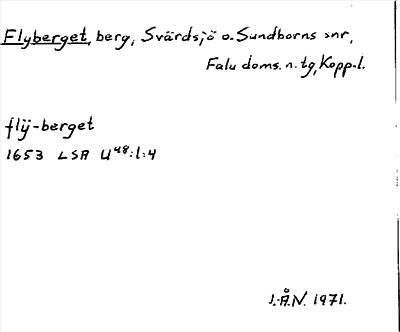 Flyberget, berg, Svärdsjö o. Sundborns snr,
Falu doms. n. tg, Kopp.l.
flÿ-berget
1653 LSA U48:1:4
J.Å.N. 1971.